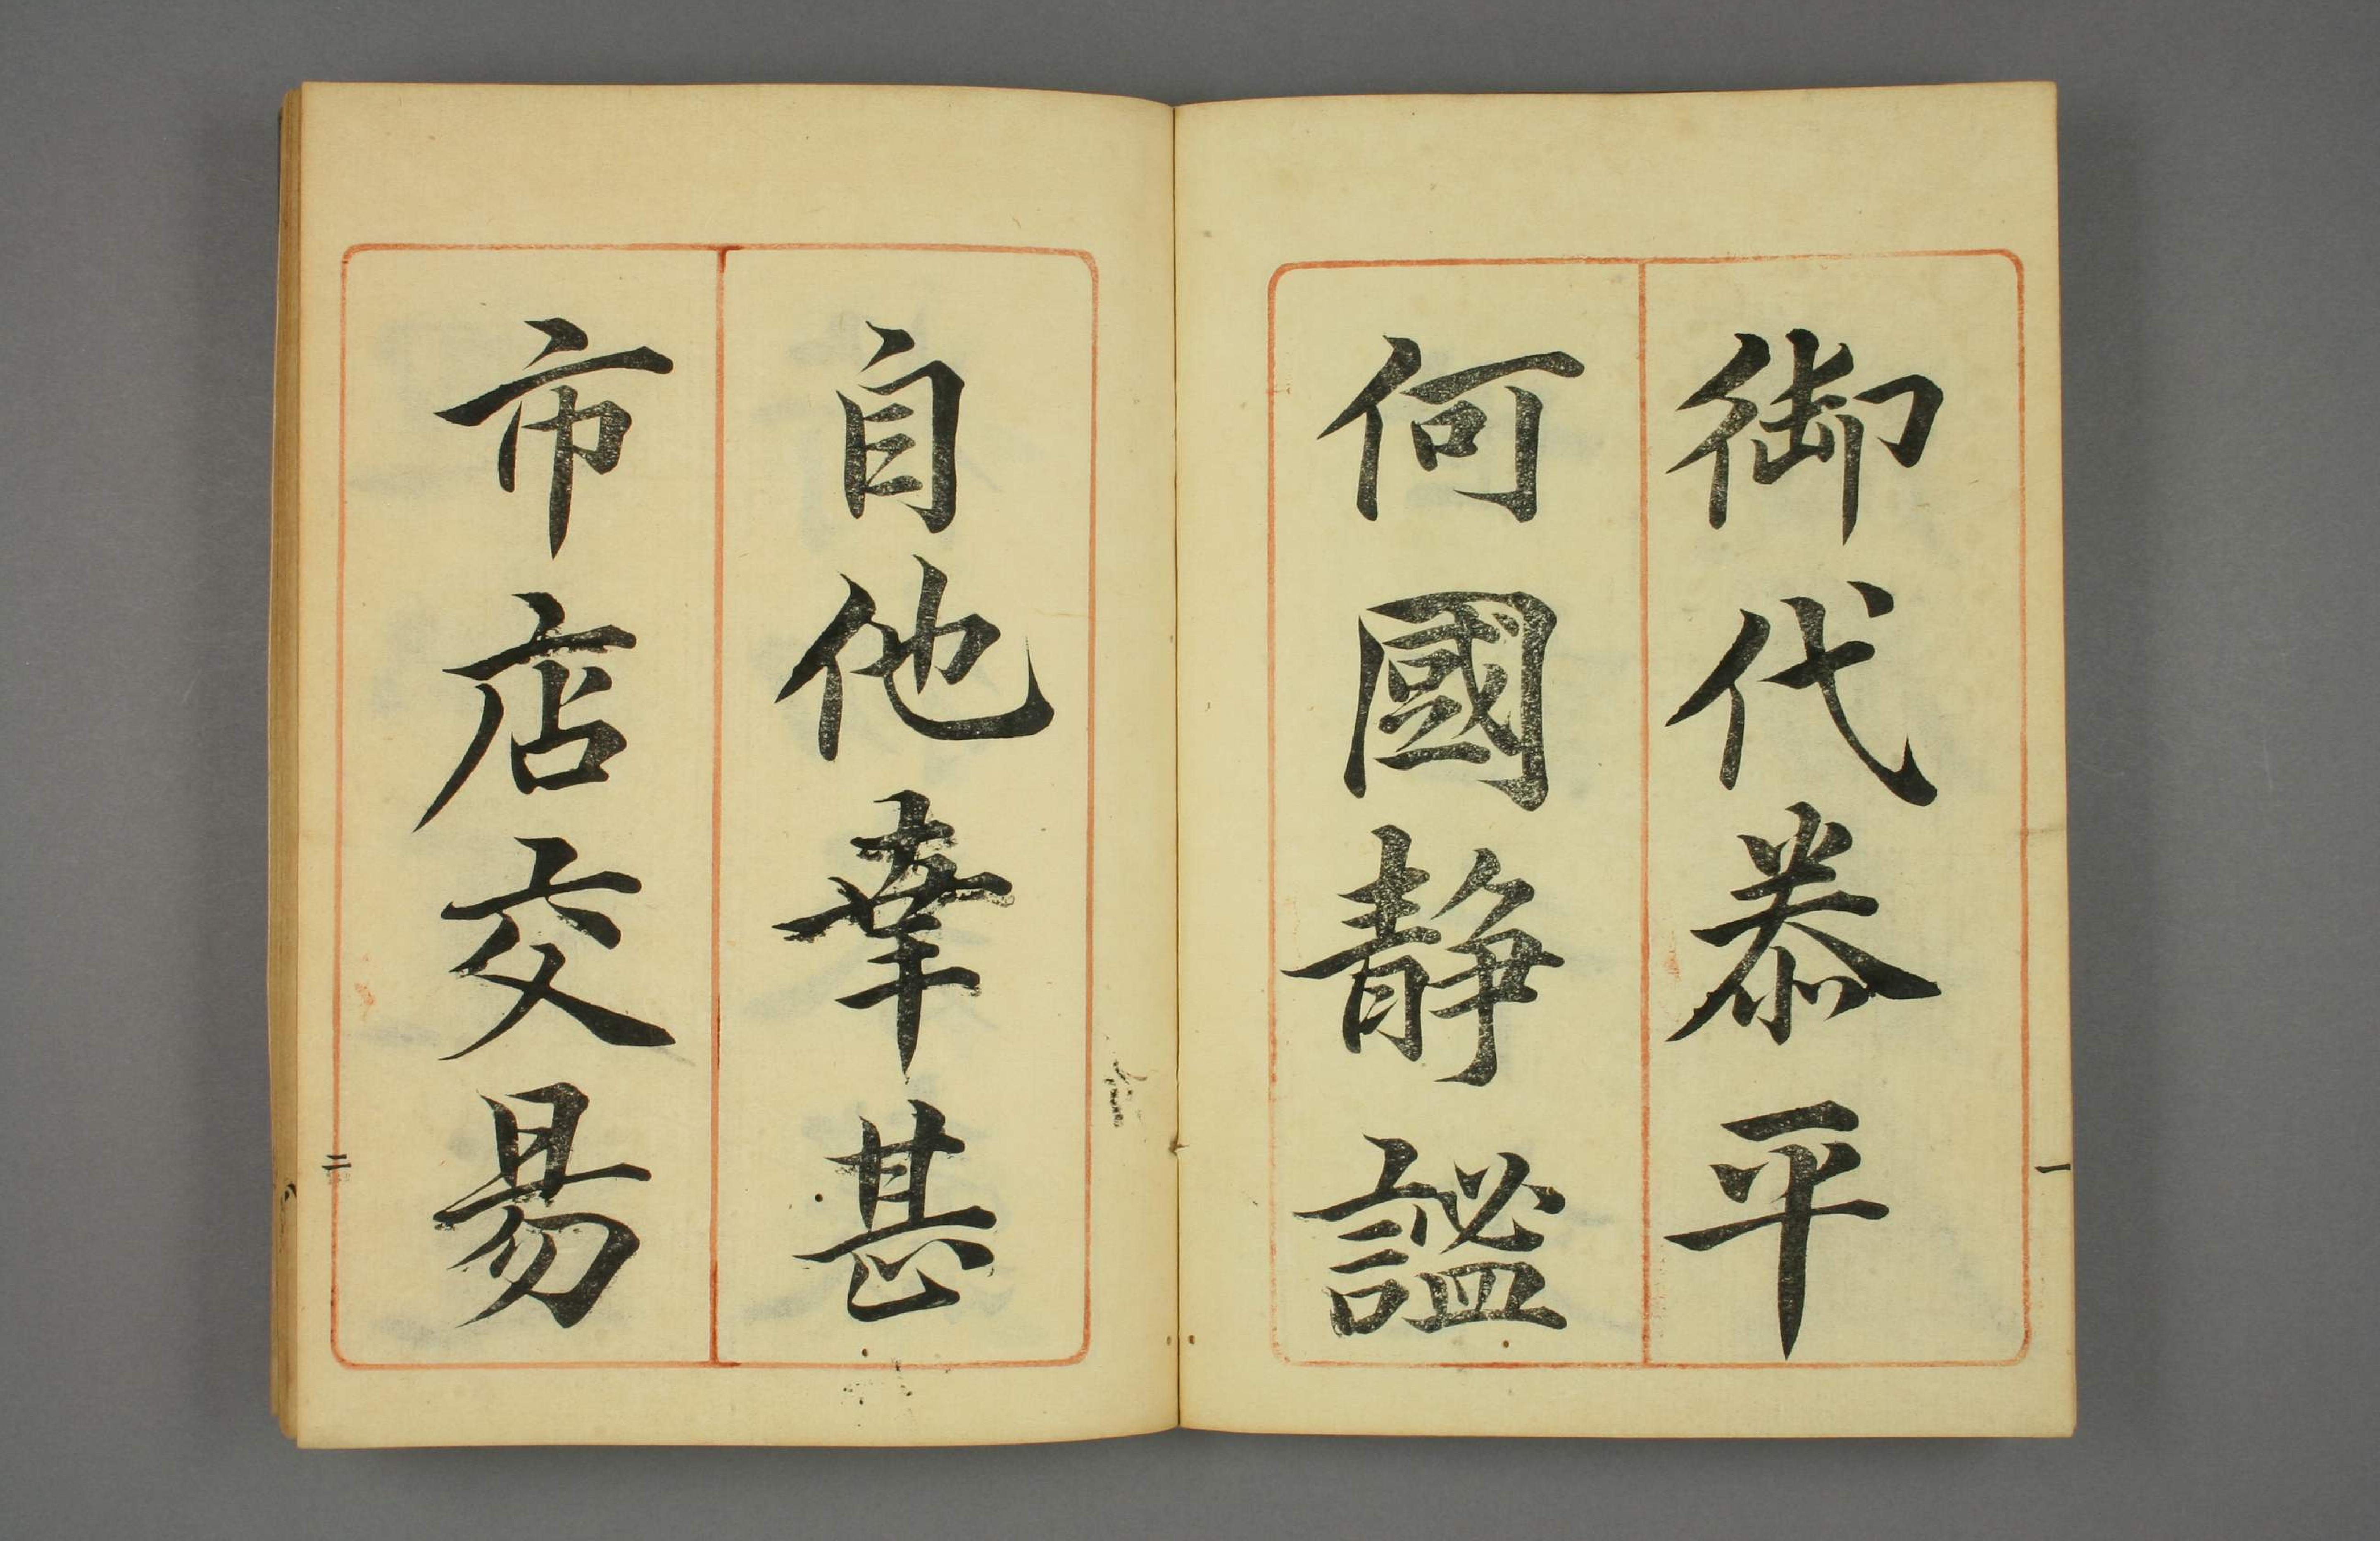 御代泰平
一
何國静謐
自他幸甚
市店交易
二